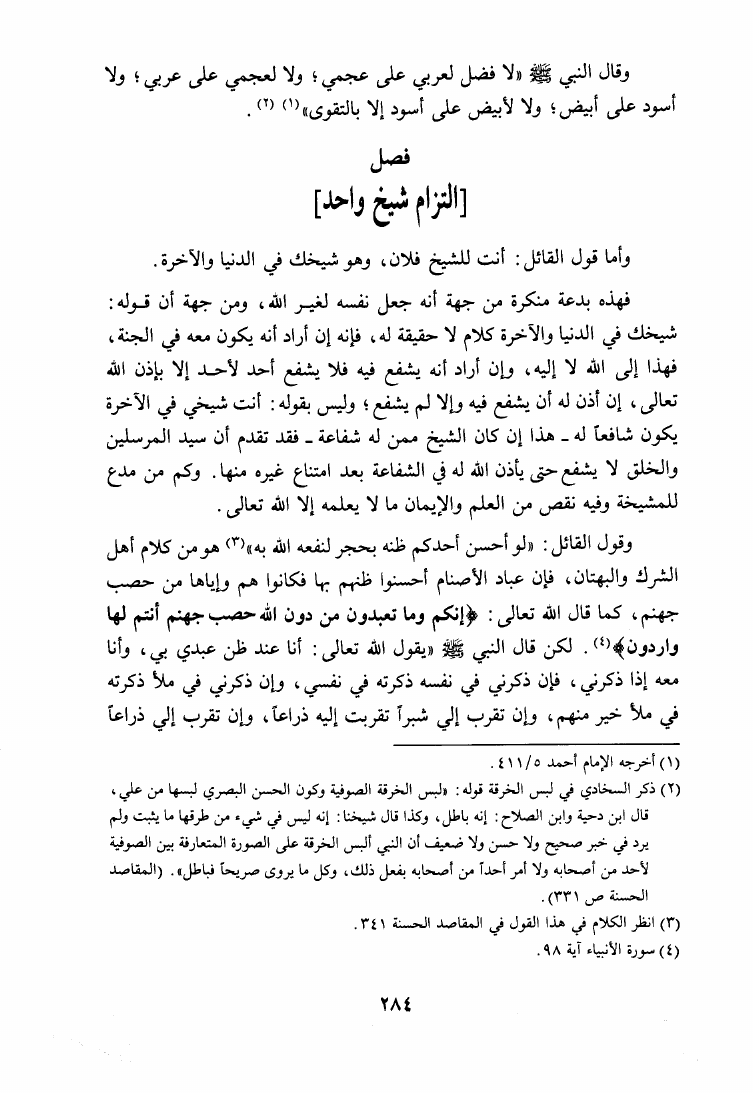 وقال النبي ﷺ «لا فضل لعربي على عجمي؛ ولا لعجمي على عربي؛ ولا
أسود على أبيض؛ ولا لأبيض على أسود إلا بالتقوى»(١) (٢) .
فصل
[التزام شيخ واحد]
وأما قول القائل: أنت للشيخ فلان، وهو شيخك في الدنيا والآخرة.
فهذه بدعة منكرة من جهة أنه جعل نفسه لغير الله، ومن جهة أن قوله:
شيخك في الدنيا والآخرة كلام لا حقيقة له، فإنه إن أراد أنه يكون معه في الجنة،
فهذا إلى الله لا إليه، وإن أراد أنه يشفع فيه فلا يشفع أحد لأحد إلا بإذن الله
تعالى، إن أذن له أن يشفع فيه وإلا لم يشفع؛ وليس بقوله: أنت شيخي في الآخرة
يكون شافعاً له ـ هذا إن كان الشيخ ممن له شفاعة ـ فقد تقدم أن سيد المرسلين
والخلق لا يشفع حتى يأذن الله له في الشفاعة بعد امتناع غيره منها. وكم من مدع
للمشيخة وفيه نقص من العلم والإيمان ما لا يعلمه إلا الله تعالى.
وقول القائل: «لو أحسن أحدكم ظنه بحجر لنفعه الله به»(٣) هو من كلام أهل
الشرك والبهتان، فإن عباد الأصنام أحسنوا ظنهم بها فكانوا هم وإياها من حصب
جهنم، كما قال الله تعالى: ﴿إنكم وما تعبدون من دون الله حصب جهنم أنتم لها
واردون﴾(٤). لكن قال النبي ﷺ «يقول الله تعالى: أنا عند ظن عبدي بي، وأنا
معه إذا ذكرني، فإن ذكرني في نفسه ذكرته في نفسي، وإن ذكرني في ملأ ذكرته
في ملأ خير منهم، وإن تقرب إلي شبراً تقربت إليه ذراعاً، وإن تقرب إلي ذراعاً
(١) أخرجه الإمام أحمد ٤١١/٥.
(٢) ذكر السخادي في لبس الخرقة قوله: «لبس الخرقة الصوفية وكون الحسن البصري لبسها من علي،
قال ابن دحية وابن الصلاح: إنه باطل، وكذا قال شيخنا: إنه ليس في شيء من طرقها ما يثبت ولم
يرد في خبر صحيح ولا حسن ولا ضعيف أن النبي ألبس الخرقة على الصورة المتعارفة بين الصوفية
لأحد من أصحابه ولا أمر أحداً من أصحابه بفعل ذلك، وكل ما يروى صريحاً فباطل». (المقاصد
الحسنة ص ٣٣١).
(٣) انظر الكلام في هذا القول في المقاصد الحسنة ٣٤١.
(٤) سورة الأنبياء آية ٩٨.
٢٨٤